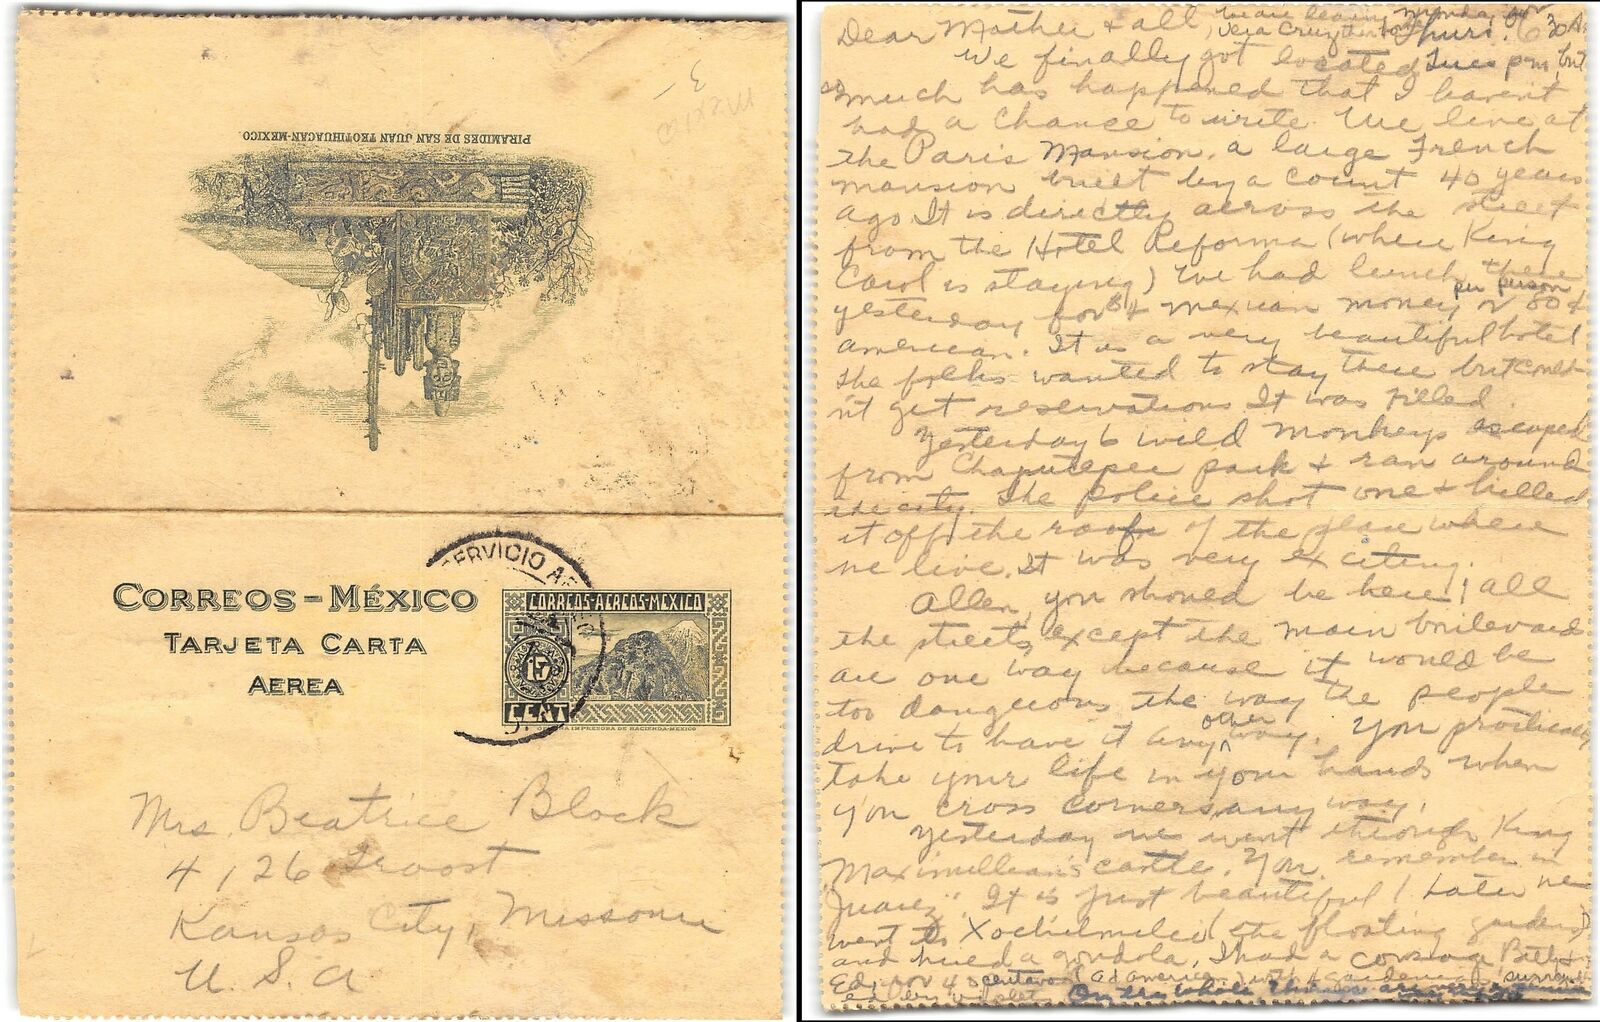 Mexico
3-
PIRAMIDES DE SAN JUAN TEOTIHUACAN-MEXICO.
CORREOS-MÉXICO
TARJETA CARTA
AEREA
SERVICIO AE
CORREOS-AEREOS-MEXICO
15
CENT
OFICINA IMPRESORA DE HACIENDA-MEXICO
Mrs. Beatrice Block
4126 Troost
Kansas City, Missouri
U. S. A
Dear Mother & all Thurs. 6 30 A
we are leaving Monday for
Vera Cruz
We finally got located Tues pm, but
so much has happened that I haven't
had a chance to write. We live at
the Paris Mansion, a large French
mansion built by a Count 40 years
ago It is directly across the street
from the Hotel Reforma (where King
Carol is staying) We had lunch there
yesterday for $4 Mexican money or 80¢ per person
american. It is a very beautiful hotel
The folks wanted to stay there but could
n't get reservations It was filled.
Yesterday 6 wild monkeys escaped
from Chapultepec park & ran around
the city. The police shot one & killed
it off the roof of the place where
we live. It was very exciting.
Allen, you should be here! all
the streets, except the main boulevard
are one way because it would be
too dangerous the way the people
drive to have it any other way. You practically
take your life in your hands when
you cross corners any way.
Yesterday we went through King
Maximillean's castle. You remember in
"Juarez". It is just beautiful! Later we
went to Xochimilco (the floating gardens)
and hired a gondola. I had a corsage Bill &
Ed for 40 centavos (8¢ american) with 4 gardenias
On the whole things are very